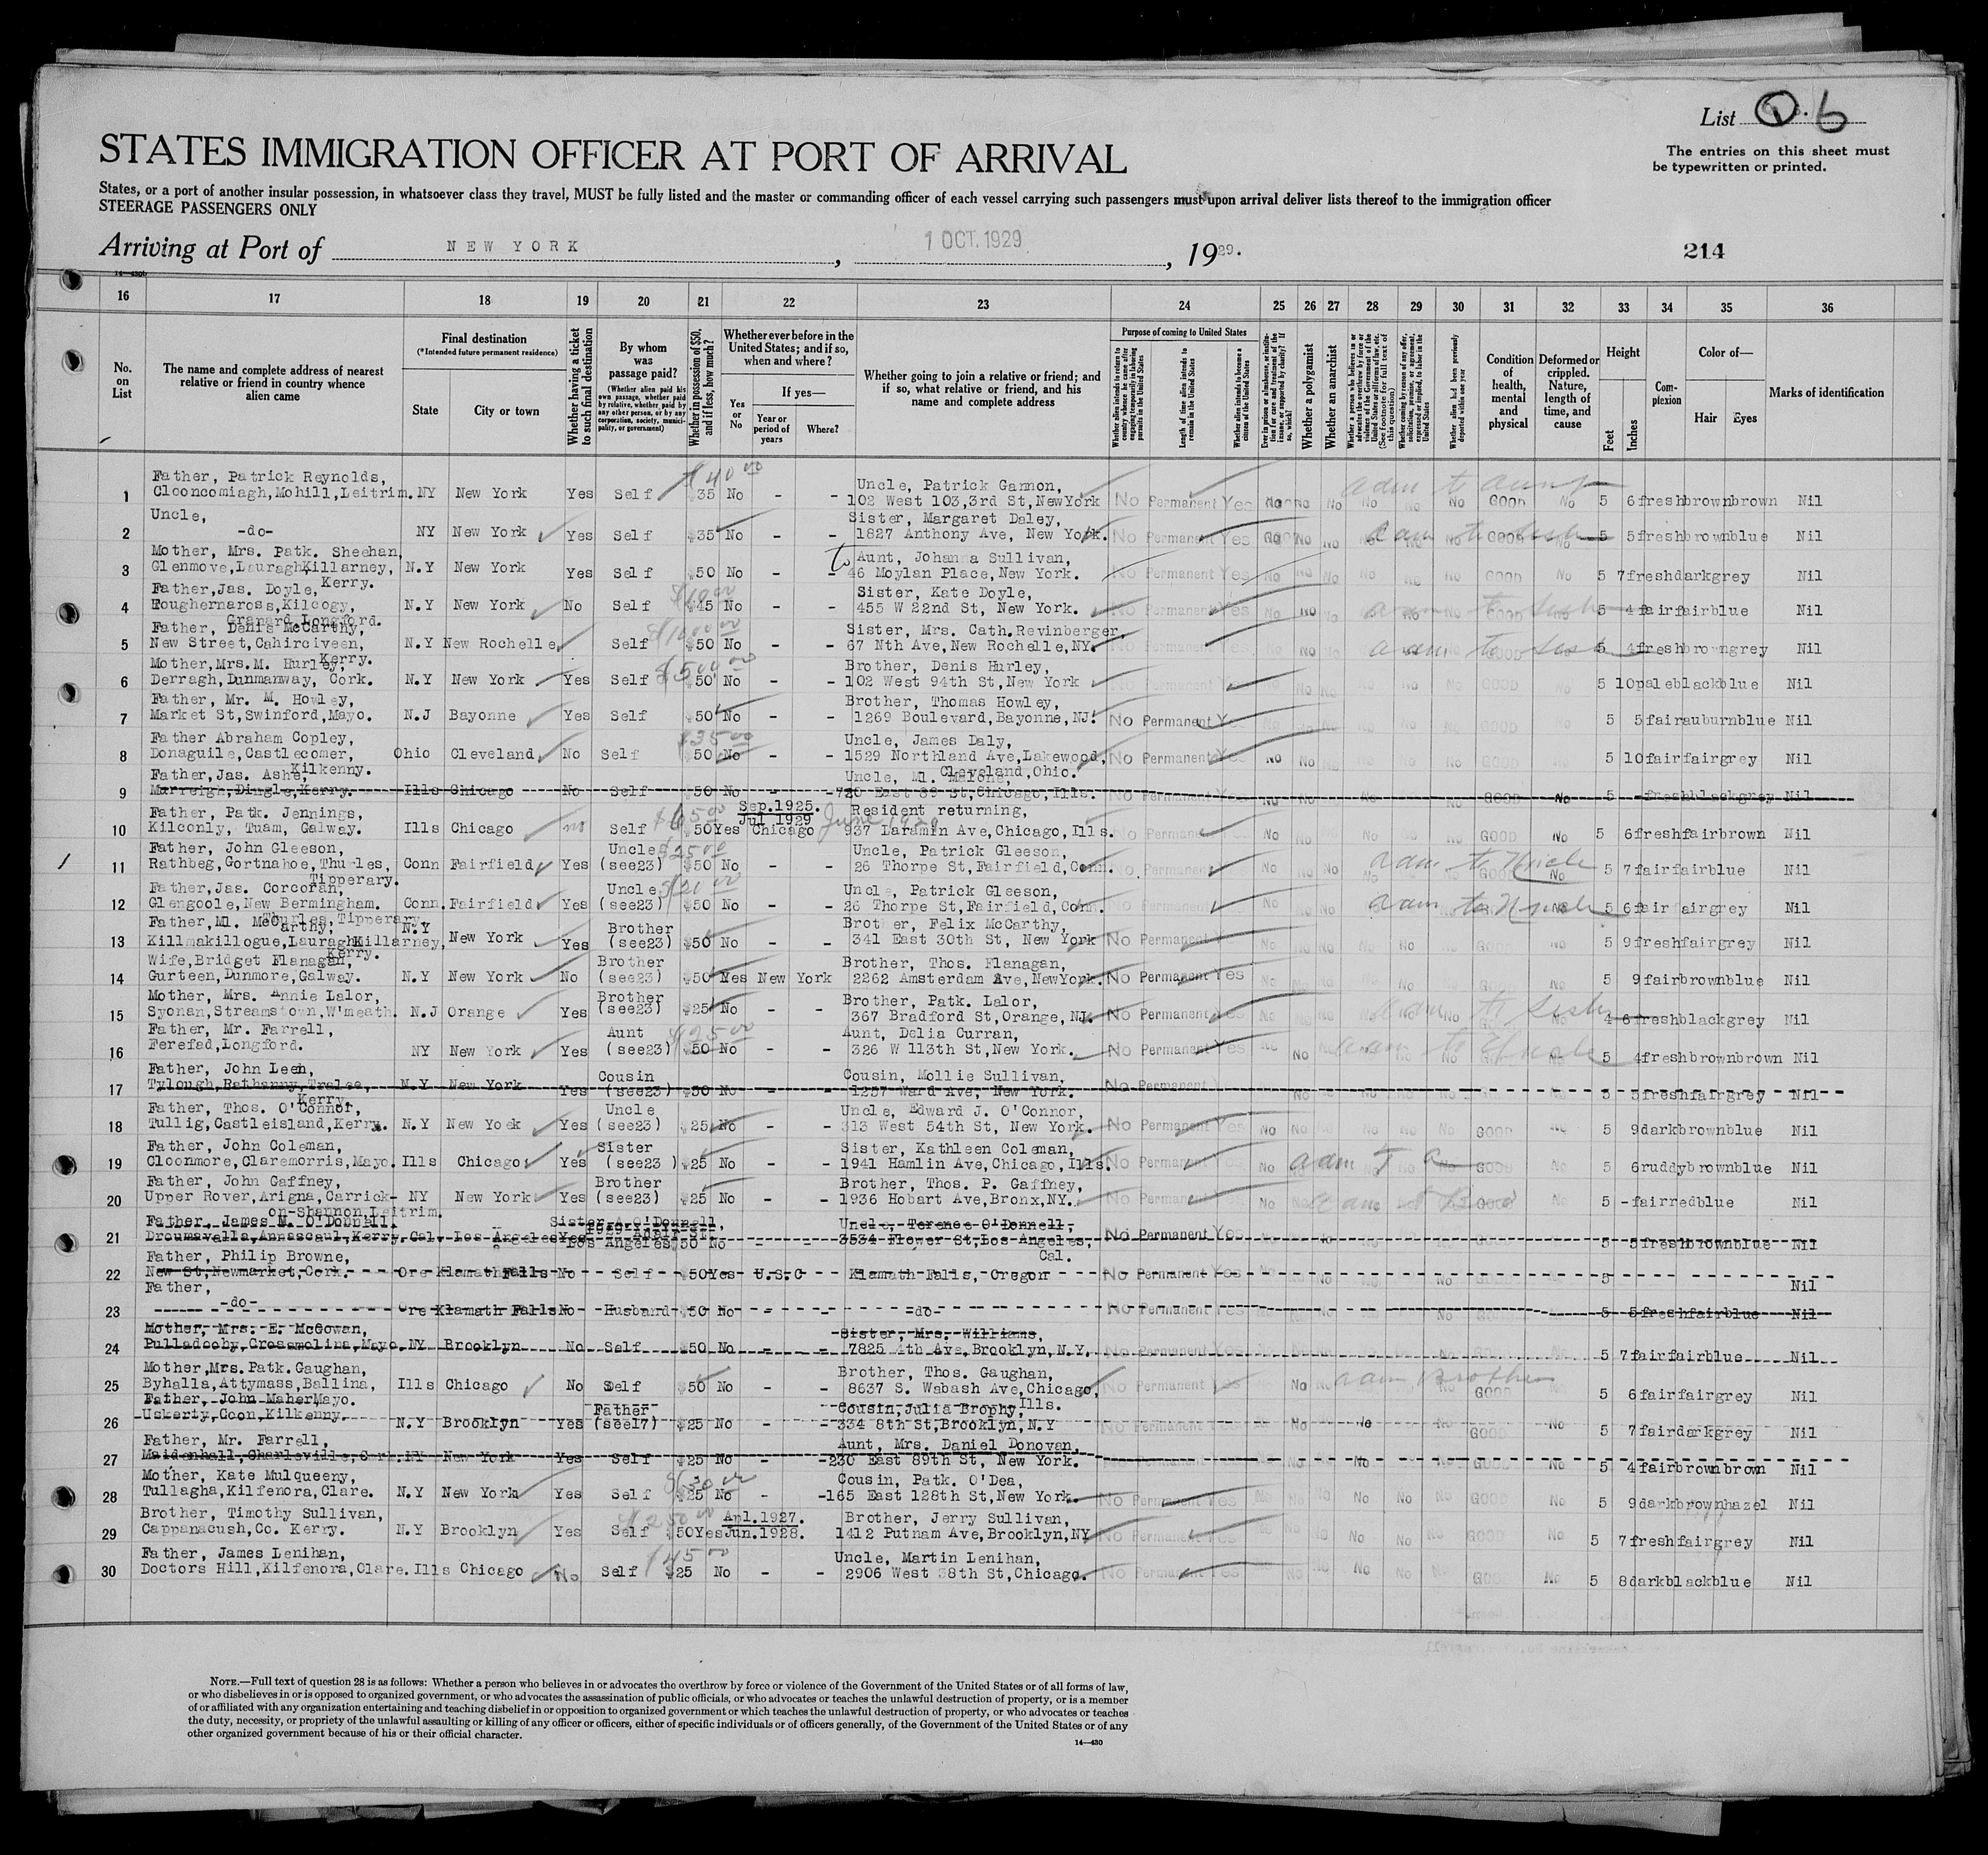 List 6
The entries on this sheet must
be typewritten or printed.
STATES IMMIGRATION OFFICER AT PORT OF ARRIVAL
States, or a port of another insular possession, in whatsoever class they travel, MUST be fully listed and the master or commanding officer of each vessel carrying such passengers must upon arrival deliver lists thereof to the immigration officer
STEERAGE PASSENGERS ONLY
Arriving at Port of NEW YORK, 1 OCT. 1929, 1929. 214
16 17 18 19 20 21 22 23 24 25 26 27 28 29 30 31 32 33 34 35 36
No. on List
The name and complete address of nearest relative or friend in country whence alien came
Final destination
(*Intended future permanent residence)
State
City or town
Whether having a ticket to such final destination
By whom was passage paid?
(Whether alien paid his own passage, whether paid by relative, whether paid by any other person, or by any corporation, society, municipality, or government)
Whether in possession of $50, and if less, how much?
Whether ever before in the United States; and if so, when and where?
Yes or No
If yes—
Year or period of years
Where?
Whether going to join a relative or friend; and if so, what relative or friend, and his name and complete address
Purpose of coming to United States
Whether alien intends to return to country whence he came after engaging temporarily in laboring pursuits in the United States
Length of time alien intends to remain in the United States
Whether alien intends to become a citizen of the United States
Whether a polygamist
Whether an anarchist
Whether alien had been previously deported within one year
Condition of health, mental and physical
Deformed or crippled. Nature, length of time, and cause
Height
Feet
Inches
Complexion
Color of—
Hair
Eyes
Marks of identification
1 Father, Patrick Reynolds,
Clooncomiagh, Mohill, Leitrim. NY New York Yes Self $35 No - - Uncle, Patrick Gannon,
102 West 103,3rd St, NewYork No Permanent Yes No No No No No No GOOD No 5 6 fresh brown brown Nil
2 Uncle,
-do- NY New York Yes Self $35 No - - Sister, Margaret Daley,
1827 Anthony Ave, New York. No Permanent Yes 5 5 fresh brown blue Nil
3 Mother, Mrs. Patk. Sheehan,
Glenmove, Lauragh, Killarney, Kerry. N.Y New York Yes Self $50 No - - Aunt, Johanna Sullivan,
46 Moylan Place, New York. No Permanent Yes 5 7 fresh dark grey Nil
4 Father, Jas. Doyle,
Foughernaross, Kilcogy,
Granard, Longford. N.Y New York No Self $45 No - - Sister, Kate Doyle,
455 W 22nd St, New York. No Permanent Yes 5 4 fair fair blue Nil
5 Father, Denis McCarthy,
New Street, Cahirciveen,
Kerry. N.Y New Rochelle Self $50 No - - Sister, Mrs. Cath. Revinberger,
67 Nth Ave, New Rochelle, NY. 5 4 fresh brown grey Nil
6 Mother, Mrs. M. Hurley,
Derragh, Dunmanway, Cork. N.Y New York Yes Self $50 No - - Brother, Denis Hurley,
102 West 94th St, New York 5 10 pale black blue Nil
7 Father, Mr. M. Howley,
Market St, Swinford, Mayo. N.J Bayonne Yes Self $50 No - - Brother, Thomas Howley,
1269 Boulevard, Bayonne, NJ. No Permanent Yes 5 5 fair auburn blue Nil
8 Father Abraham Copley,
Donaguile, Castlecomer,
Kilkenny. Ohio Cleveland No Self $50 No - - Uncle, James Daly,
1529 Northland Ave, Lakewood,
Cleveland, Ohio. No Permanent Yes 5 10 fair fair grey Nil
9 Father, Jas. Ashe,
Marreigh, Dingle, Kerry. Ills Chicago No Self $50 No - - Uncle, Ml. Malone,
720 East 89 St, Chicago, Ills. No Permanent Yes GOOD No 5 - fresh black grey Nil
10 Father, Patk. Jennings,
Kilconly, Tuam, Galway. Ills Chicago no Self $50 Yes Sep. 1925.
Jul 1929
Chicago June 1929 Resident returning,
937 Laramin Ave, Chicago, Ills. No Permanent GOOD No 5 6 fresh fair brown Nil
11 Father, John Gleeson,
Rathbeg, Gortnahoe, Thurles,
Tipperary. Conn Fairfield Yes Uncle (see23) $50 No - - Uncle, Patrick Gleeson,
26 Thorpe St, Fairfield, Conn. adm to Uncle 5 7 fair fair blue Nil
12 Father, Jas. Corcoran,
Glengoole, New Bermingham.
Thurles, Tipperary. Conn. Fairfield Yes Uncle (see23) $50 No - - Uncle, Patrick Gleeson,
26 Thorpe St, Fairfield, Conn. adm to Uncle 5 6 fair fair grey Nil
13 Father, Ml. McCarthy,
Killmakillogue, Lauragh, Killarney,
Kerry. N.Y New York Yes Brother (see23) $50 No - - Brother, Felix McCarthy,
341 East 30th St, New York No Permanent Yes 5 9 fresh fair grey Nil
14 Wife, Bridget Flanagan,
Gurteen, Dunmore, Galway. N.Y New York No Brother (see23) $50 Yes New York Brother, Thos. Flanagan,
2262 Amsterdam Ave, NewYork. No Permanent Yes 5 9 fair brown blue Nil
15 Mother, Mrs. Annie Lalor,
Syonan, Streamstown, W'meath. N.J Orange Yes Brother (see23) $25 No - - Brother, Patk. Lalor,
367 Bradford St, Orange, NJ. No Permanent Yes adm to sister 4 6 fresh black grey Nil
16 Father, Mr. Farrell,
Ferefad, Longford. NY New York Yes Aunt (see23) $50 No - - Aunt, Delia Curran,
326 W 113th St, New York. No Permanent Yes adm to Uncle 5 4 fresh brown brown Nil
17 Father, John Leen,
Tylough, Rathanny, Tralee,
Kerry. N.Y New York Yes Cousin (see23) $50 No - - Cousin, Mollie Sullivan,
1257 Ward Ave, New York. No Permanent 5 5 fresh fair grey Nil
18 Father, Thos. O'Connor,
Tullig, Castleisland, Kerry. N.Y New Yoek Yes Uncle (see23) $25 No - - Uncle, Edward J. O'Connor,
313 West 54th St, New York. No Permanent Yes GOOD 5 9 dark brown blue Nil
19 Father, John Coleman,
Cloonmore, Claremorris, Mayo. Ills Chicago Yes Sister (see23) $25 No - - Sister, Kathleen Coleman,
1941 Hamlin Ave, Chicago, Ills. No Permanent Yes 5 6 ruddy brown blue Nil
20 Father, John Gaffney,
Upper Rover, Arigna, Carrick-
on-Shannon, Leitrim. NY New York Yes Brother (see23) $25 No - - Brother, Thos. P. Gaffney,
1936 Hobart Ave, Bronx, NY. No Permanent Yes 5 - fair red blue Nil
21 Father, James M. O'Donnell.
Droumavalla, Annascaul, Kerry. Cal. Los Angeles Yes Sister A O'Donnell,
Los Angeles $50 No - - Uncle, Terence O'Donnell,
3534 Flower St, Los Angeles,
Cal. No Permanent Yes 5 5 fresh brown blue Nil
22 Father, Philip Browne,
New St, Newmarket, Cork. Ore Klamath Falls No Self $50 Yes U.S.C Klamath Falls, Oregon No Permanent Yes 5 Nil
23 Father,
-do- Ore Klamath Falls No Husband $50 No - - -do- No Permanent Yes 5 5 fresh fair blue Nil
24 Mother, Mrs. E. McGowan,
Pulladoohy, Crossmolina, Mayo. NY Brooklyn No Self $50 No - - Sister, Mrs. Williams,
7825 4th Ave, Brooklyn, N.Y. No Permanent Yes 5 7 fair fair blue Nil
25 Mother, Mrs. Patk. Gaughan,
Byhalla, Attymass, Ballina,
Mayo. Ills Chicago No Self $50 No - - Brother, Thos. Gaughan,
8637 S. Wabash Ave, Chicago,
Ills. No Permanent Yes adm Brother GOOD 5 6 fair fair grey Nil
26 Father, John Maher,
Uskerty, Coon, Kilkenny. N.Y Brooklyn Yes Father (see17) $25 No - - Cousin, Julia Brophy,
334 8th St, Brooklyn, N.Y GOOD No 5 7 fair dark grey Nil
27 Father, Mr. Farrell,
Maidenhall, Charleville, Cork. NY New York Yes Self $25 No - - Aunt, Mrs. Daniel Donovan,
230 East 89th St, New York. 5 4 fair brown brown Nil
28 Mother, Kate Mulqueeny,
Tullagha, Kilfenora, Clare. N.Y New York Yes Self $25 No - - Cousin, Patk. O'Dea,
165 East 128th St, New York. No Permanent Yes No No No GOOD No 5 9 dark brown hazel Nil
29 Brother, Timothy Sullivan,
Cappanacush, Co. Kerry. N.Y Brooklyn Yes Self $50 Yes Apl. 1927.
Jun. 1928. Brother, Jerry Sullivan,
1412 Putnam Ave, Brooklyn, NY No Permanent Yes No No No GOOD No 5 7 fresh fair grey Nil
30 Father, James Lenihan,
Doctors Hill, Kilfenora, Clare. Ills Chicago No Self $25 No - - Uncle, Martin Lenihan,
2906 West 38th St, Chicago. No Permanent Yes 5 8 dark black blue Nil
NOTE.—Full text of question 28 is as follows: Whether a person who believes in or advocates the overthrow by force or violence of the Government of the United States or of all forms of law,
or who disbelieves in or is opposed to organized government, or who advocates the assassination of public officials, or who advocates or teaches the unlawful destruction of property, or is a member
of or affiliated with any organization entertaining and teaching disbelief in or opposition to organized government or which teaches the unlawful destruction of property, or who advocates or teaches
the duty, necessity, or propriety of the unlawful assaulting or killing of any officer or officers, either of specific individuals or of officers generally, of the Government of the United States or of any
other organized government because of his or their official character.
14—430